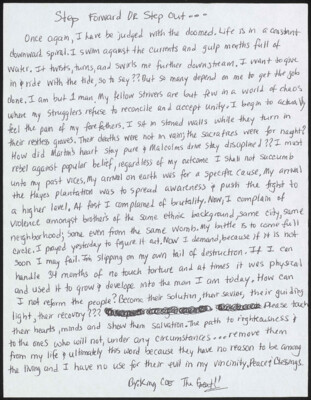 Step Forward Or Step Out---
Once again, I have be judged with the doomed. Life is in a constant
downward spiral. I swim against the currents and gulp mouths full of
water. It twists, turns, and swirls me further downstream. I want to give
in & ride with the tide, so to say?? But so many depend on me to get the job
done. I am but 1 man, My fellow strivers are but few in a world of chaos
where my strugglers refuse to reconcile and accept unity. I begin to
feel the pain of my forefathers, I sit in stoned walls while they turn in
their restless graves. Their deaths were not in vain, the sacrafices were for naught?
How did Martin's heart stay pure & Malcolms drive stay disciplined?? I must
rebel against popular belief, regardless of my outcome I shall not succumb
unto my post vices. My arrival on earth was for a specific cause, My arrival
the Hayes plantation was to spread awareness & push the fight to
a higher level. At first I complained of brutality. Now, I complain of
violence amongst brothers of the same ethnic background, same city, same
neighborhood; some even from the same womb. My battle is to come full
circle. I prayed yesterday to figure it out, Now I demand, because if it is not
soon I may fail. I'm slipping on my own trail of destruction. If I can
handle 34 months of no touch torture and at times it was physical
and used it to grow & develop into the man I am today, How can
I not reform the people? Become their solution, their savior, their guiding
light, their recovery??? Please touch
their hearts, minds and show them salvation. The path to righteousness &
to the ones who will not, under any circumstances... remove them
from my life & ultimately this word because they have no reason to be among
the living and I have no use for their evil in my vincinity. Peace & Blessings.
By: King Coe The Great!!